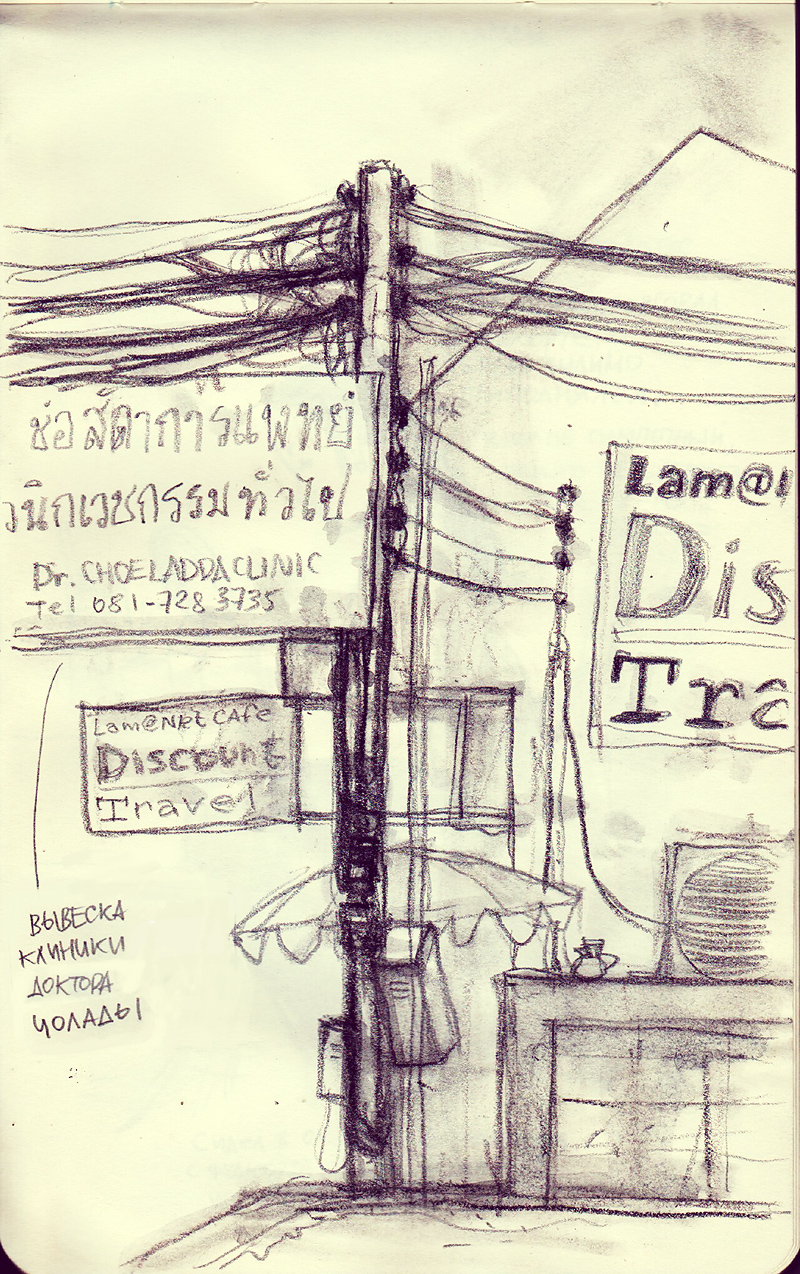 ช่อลัดาการแพทย์
วนิกเวชกรรมทั่วไป
Dr. CHOELADDA CLINIC
Tel 081-728 3735
Lam@Net CAfe
Discount
Travel
Lam@
Dis
Tra
ВЫВЕСКА
КЛИНИКИ
ДОКТОРА
ЧОЛАДЫ